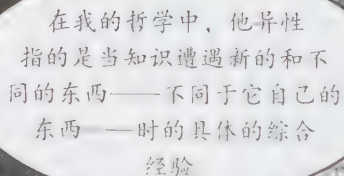 在我的哲学中，他异性
指的是当知识遭遇新的和不
同的东西——不同于它自己的
东西——时的具体的综合
经验